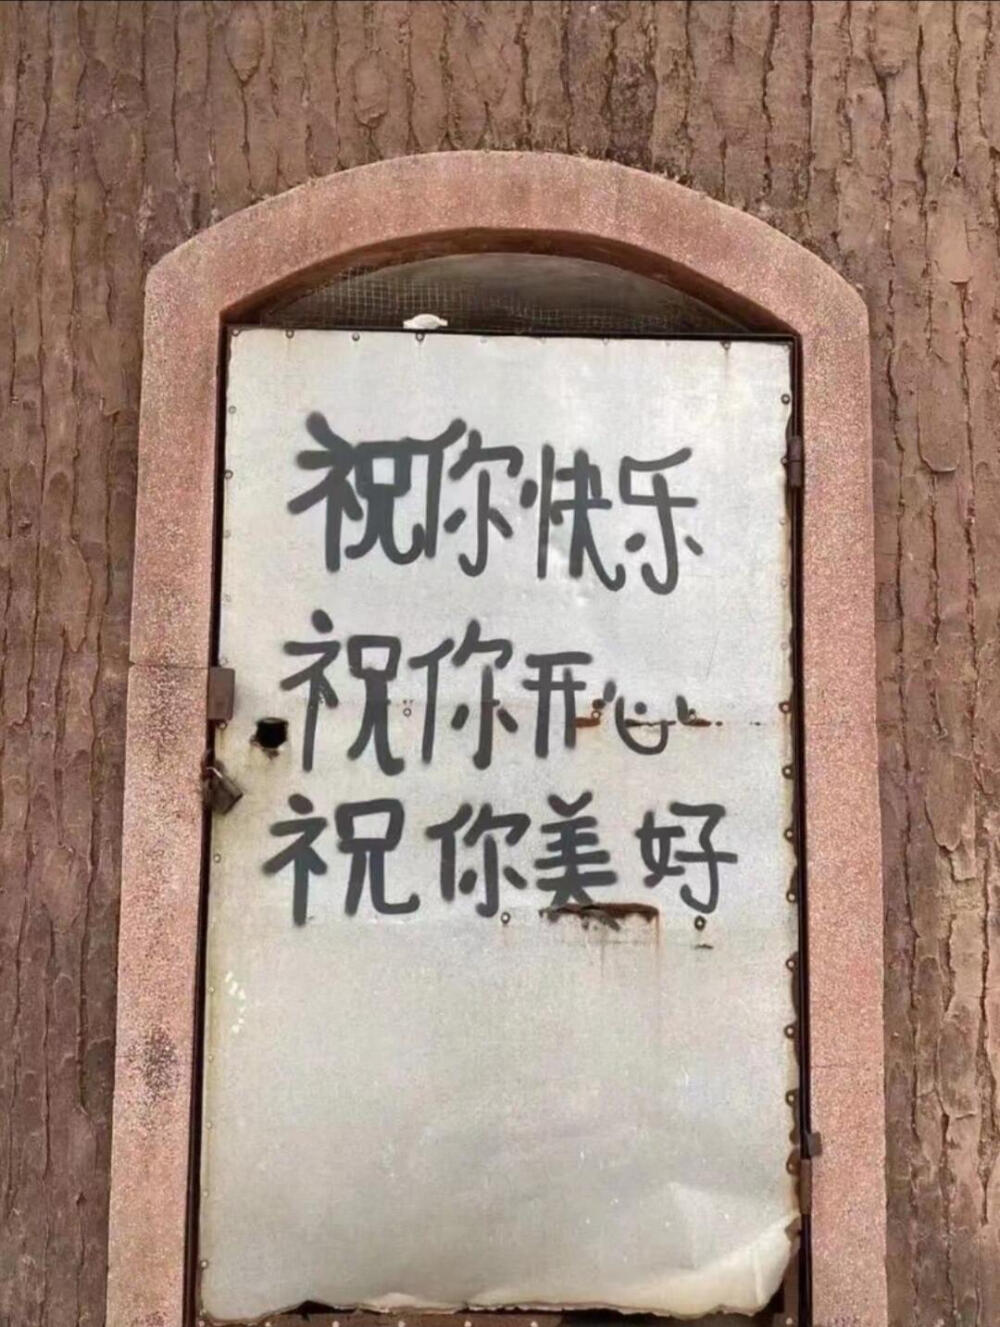 祝你快乐
祝你开心
祝你美好